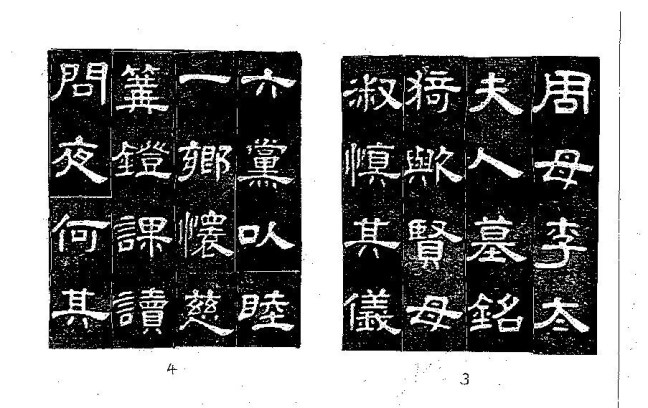 周母李太
夫人墓銘
猗歟賢母
淑慎其儀
3
六黨以睦
一鄉懷慈
篝鐙課讀
問夜何其
4